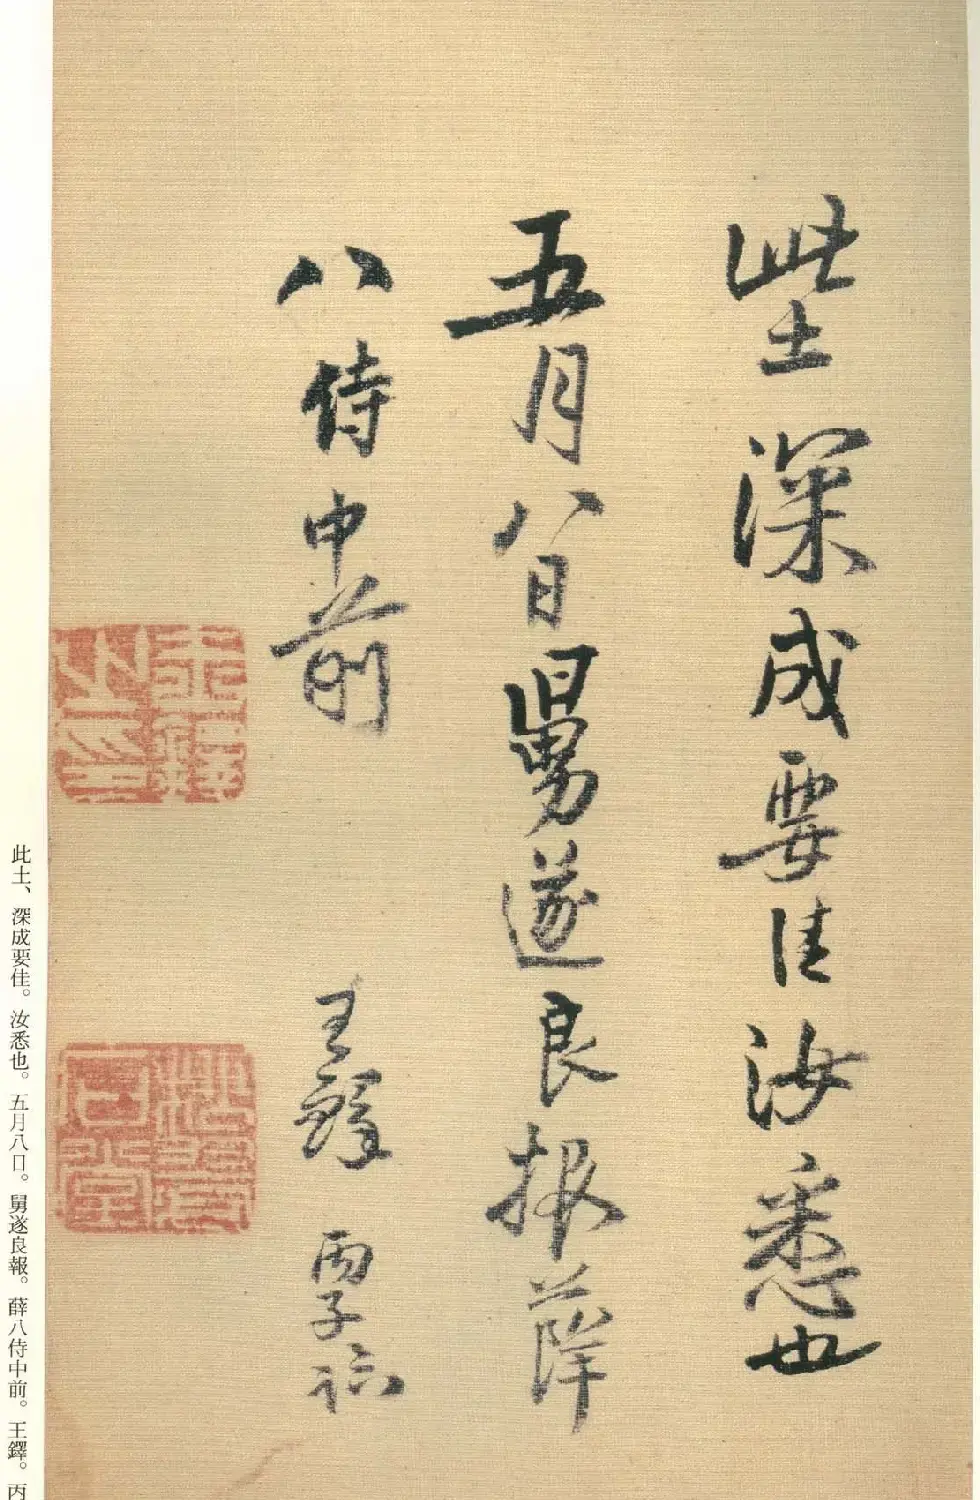 此土深成要佳汝悉也
五月八日舅遂良報薛
八侍中前
王鐸 丙子臨
王鐸之印
此土、深成要佳。汝悉也。五月八日。舅遂良報。薛八侍中前。王鐸。丙